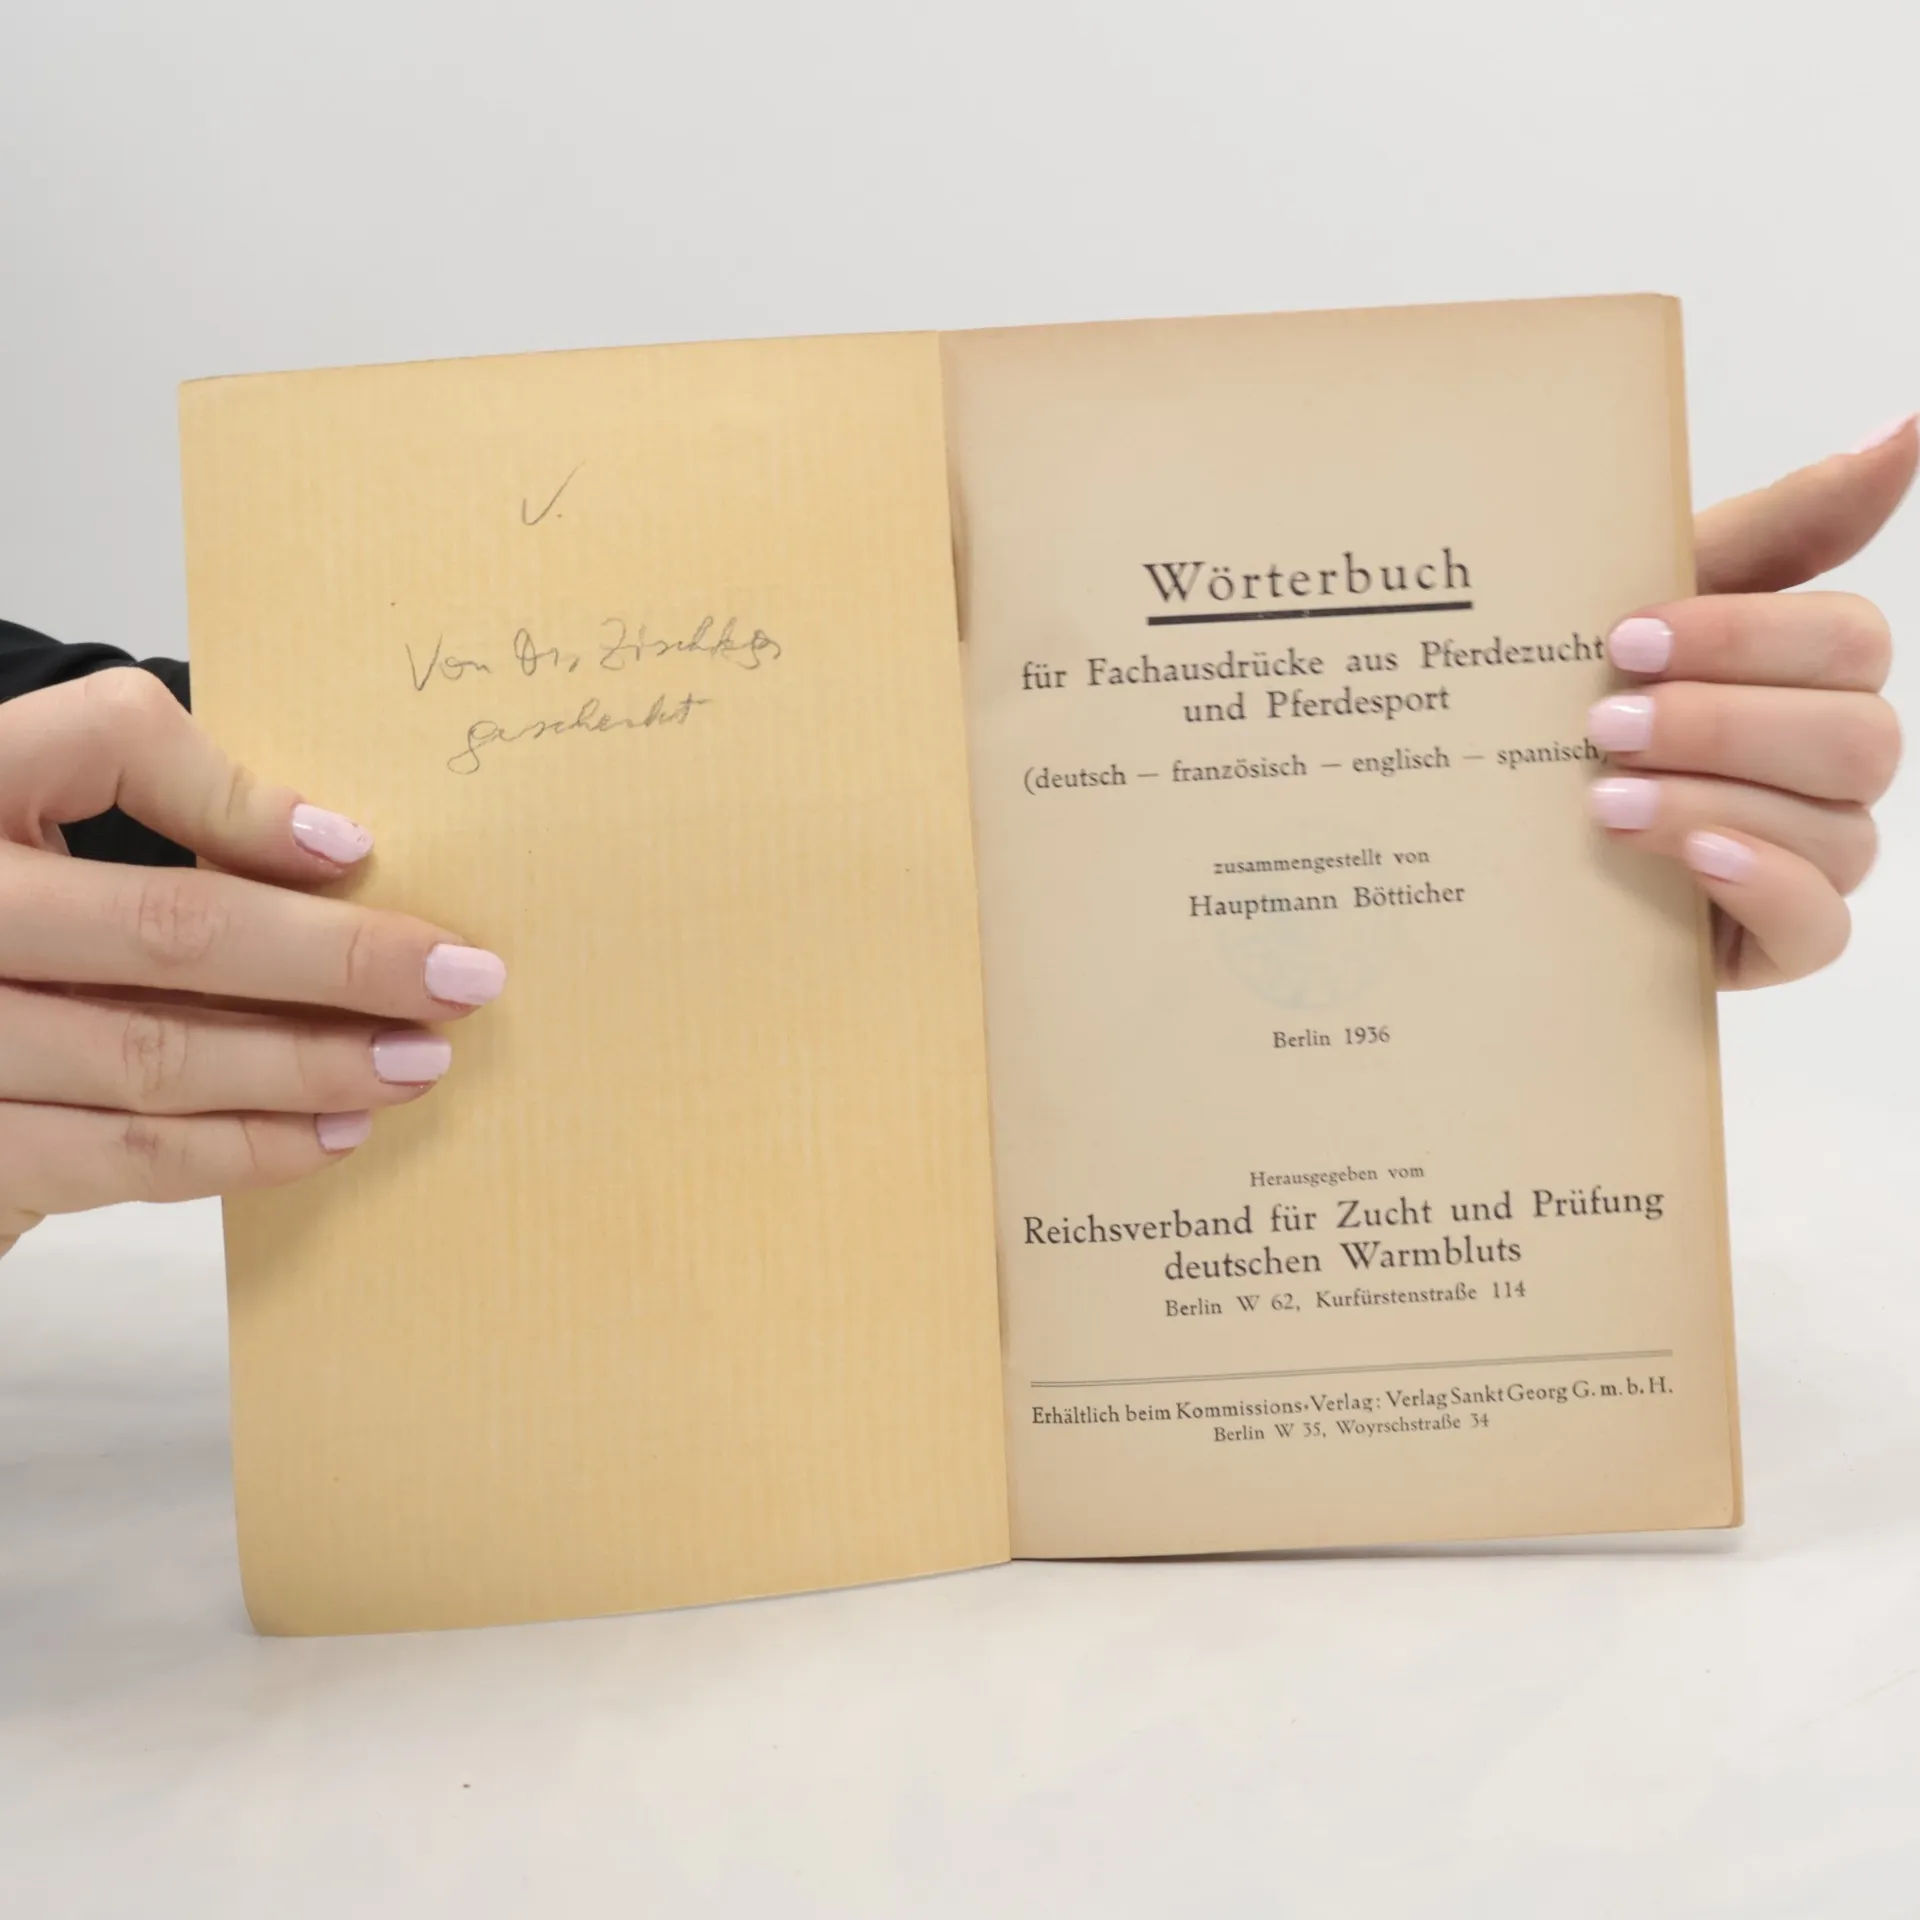 V.
Von Dr.
geschenkt
Wörterbuch
für Fachausdrücke aus Pferdezucht
und Pferdesport
(deutsch — französisch — englisch — spanisch)
zusammengestellt von
Hauptmann Bötticher
Berlin 1936
Herausgegeben vom
Reichsverband für Zucht und Prüfung
deutschen Warmbluts
Berlin W 62, Kurfürstenstraße 114
Erhältlich beim Kommissions-Verlag: Verlag Sankt Georg G. m. b. H.
Berlin W 35, Woyrschstraße 34